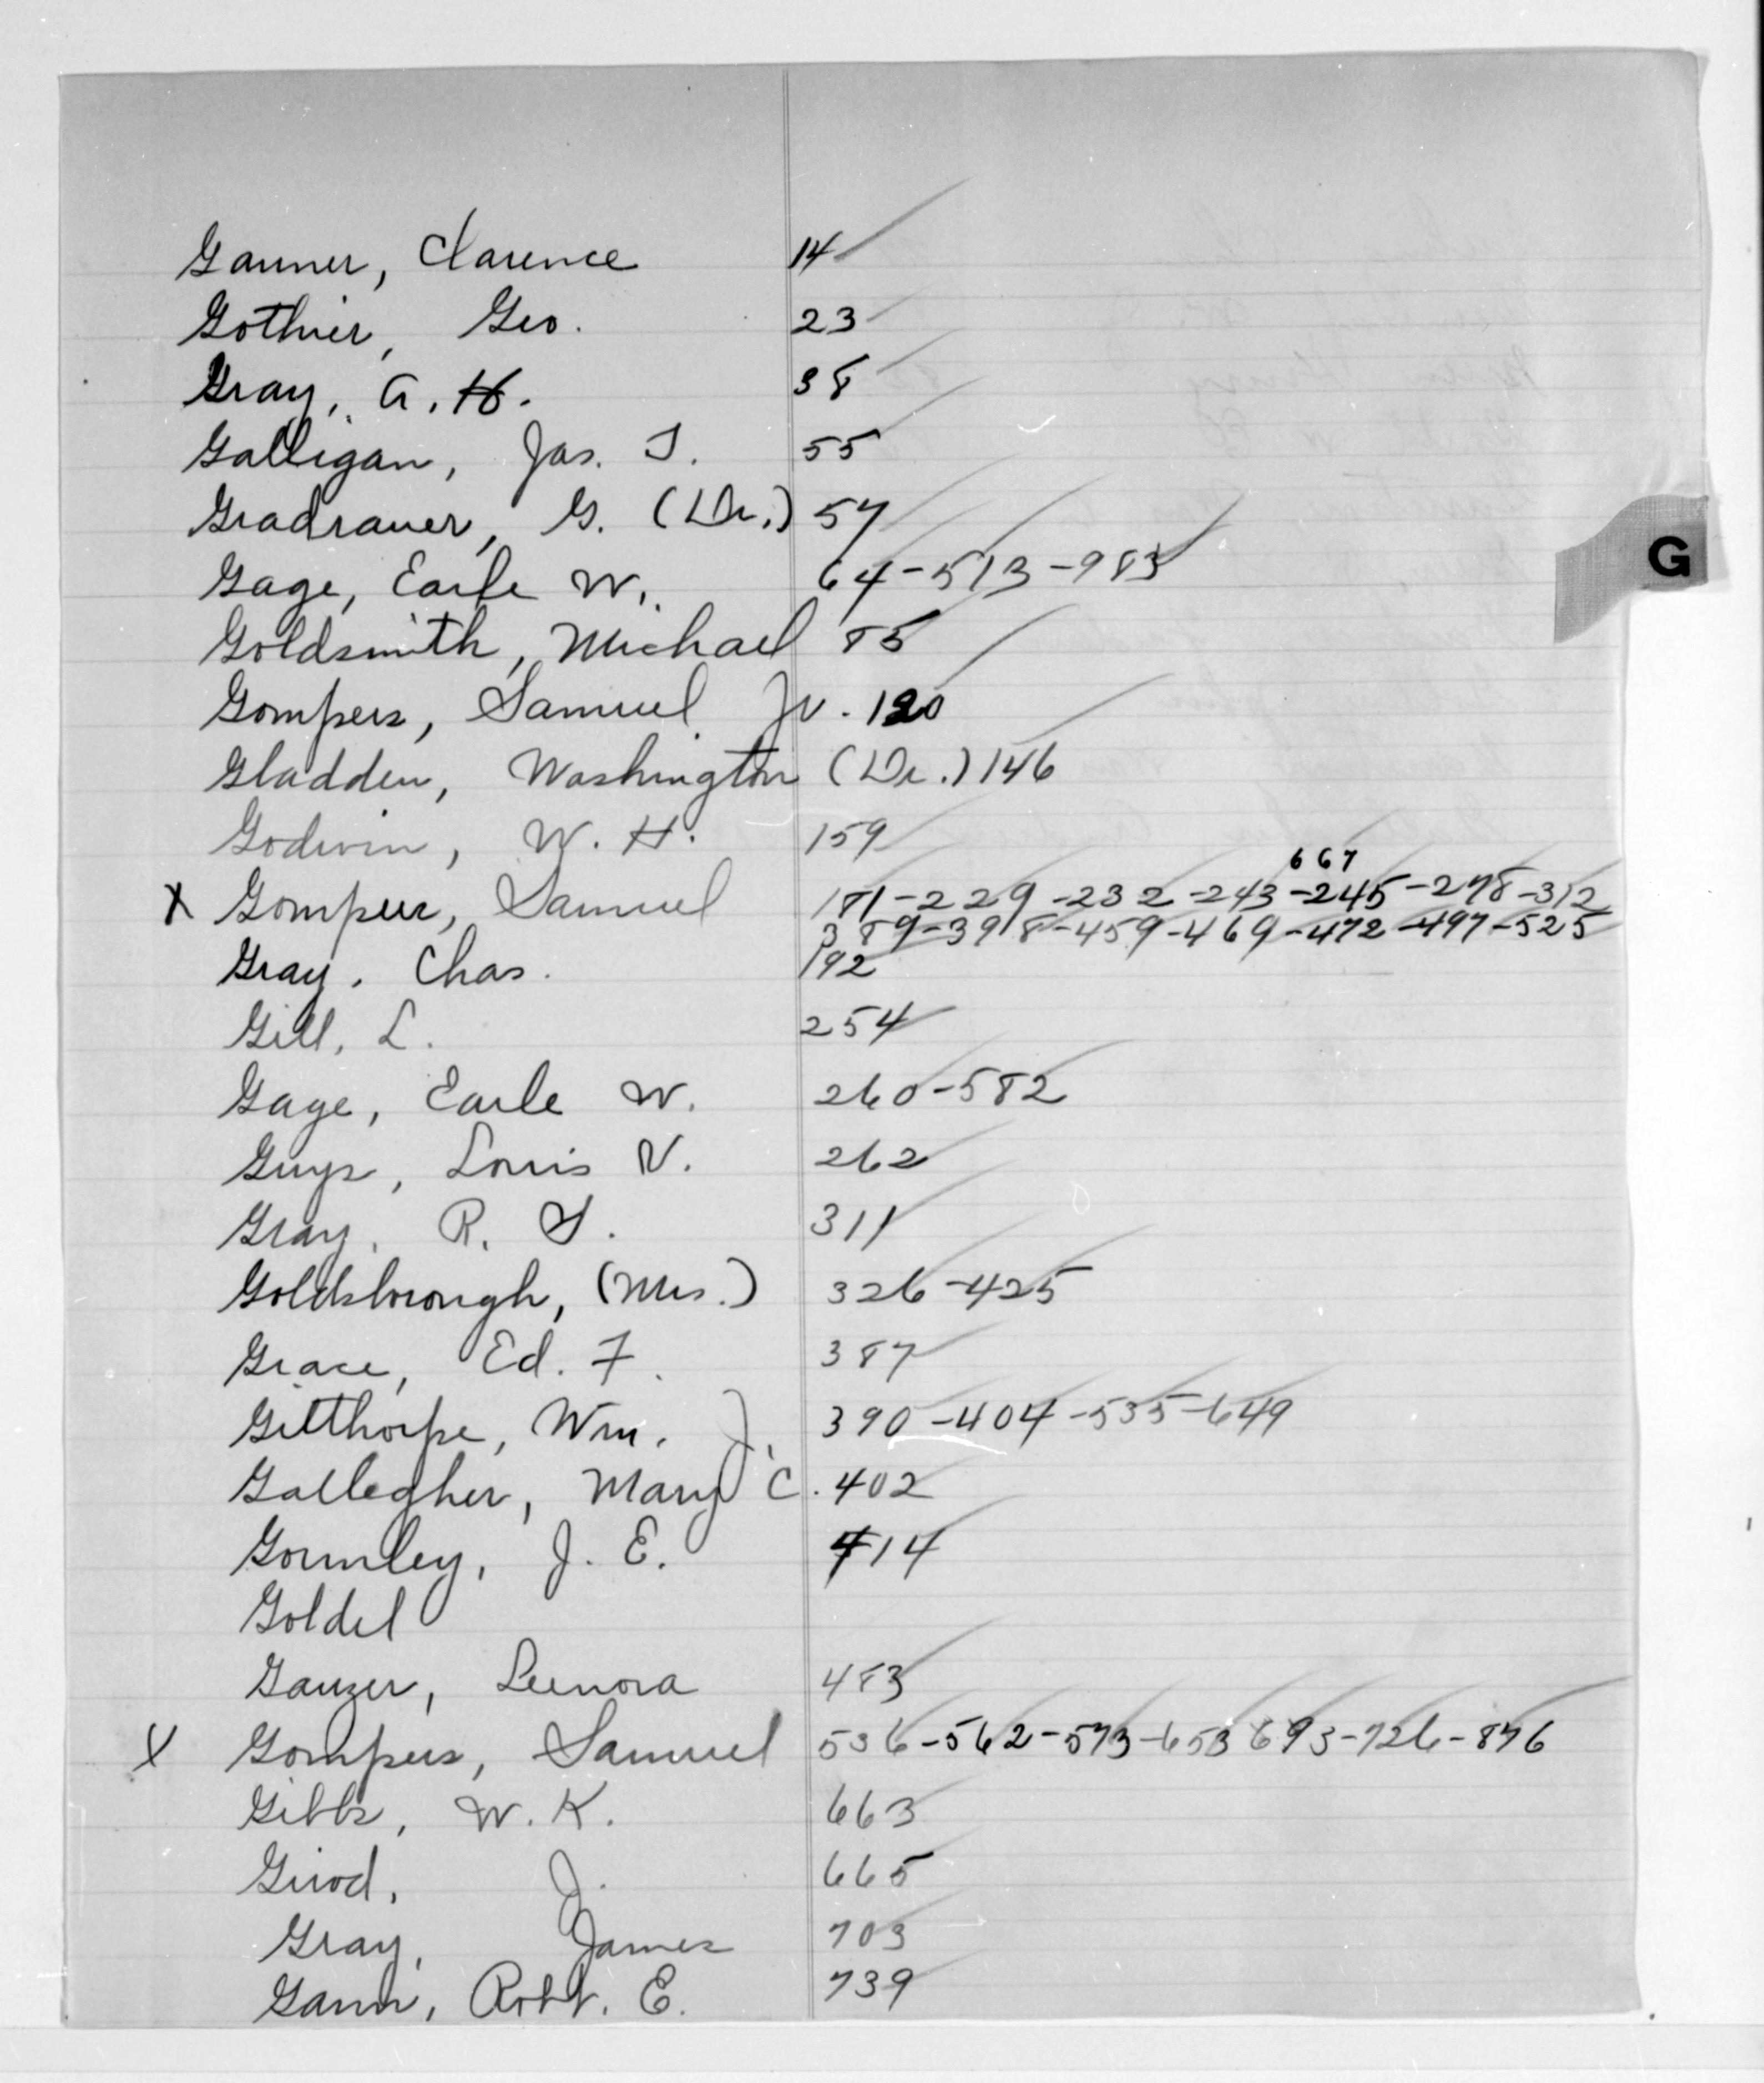 Garner, Clarence 14
Gothier, Geo. 23
Gray, G. H. 38
Galligan, Jas. T. 55
Gradrauer, G. (Dr.) 57
Gage, Earle W. 64-513-983
G
Goldsmith, Michael 85
Gompers, Samuel Jr. 120
Gladden, Washington (Dr.) 146
Godwin, W. H. 159
667
X Gompers, Samuel 181-229-232-243-245-278-312
389-398-459-469-472-497-525
Gray, Chas. 192
Gill, L. 254
Gage, Earle W. 260-582
Guys, Louis V. 262
Gray, R. S. 311
Goldsborough, (Mrs.) 326-425
Grace, Ed. F. 387
Gilthorpe, Wm. J. 390-404-535-649
Gallegher, Mary C. 402
Gormley, J. E. 414
Goldel
Ganzer, Leenora 483
X Gompers, Samuel 536-562-573-653 693-726-876
Gibbs, W. K. 663
Girod, J. 665
Gray, James 703
Gann, Robt. E. 739